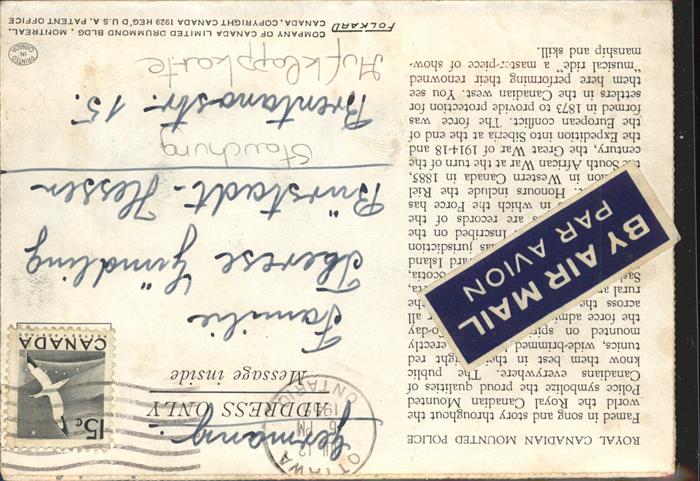 ROYAL CANADIAN MOUNTED POLICE
Famed in song and story throughout the
world the Royal Canadian Mounted
Police symbolize the proud qualities of
Canadians everywhere. The public
know them best in their bright red
tunics, wide-brimmed
mounted on
the force
across the
rural
jurisdiction
inscribed on the
are records of the
in which the Force has
Honours include the Riel
in Western Canada in 1885,
the South African War at the turn of the
century, the Great War of 1914-18 and
the Expedition into Siberia at the end of
the European conflict. The force was
formed in 1873 to provide protection for
settlers in the Canadian west. You see
them here performing their renowned
"musical ride" a master-piece of show-
manship and skill.
BY AIR MAIL
PAR AVION
OTTAWA
12
PM
ONTARIO
15c
POSTAGE POSTES
CANADA
Germany.
ADDRESS ONLY
Message inside
Familie
Therese Gündling
Bürstadt-Hessen
Brentanostr. 15.
Aufklappkarte
PRINTED IN CANADA
FOLKARD
COMPANY OF CANADA LIMITED DRUMMOND BLDG., MONTREAL,
CANADA. COPYRIGHT CANADA 1929 REG'D U.S.A. PATENT OFFICE